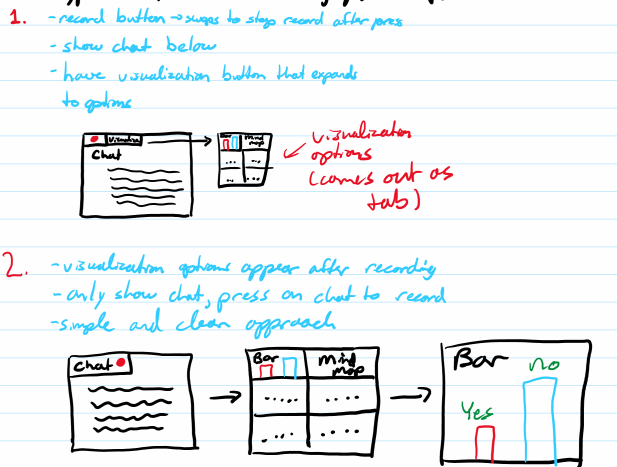 1. - record button → swaps to stop record after press
- show chat below
- have visualization button that expands
to options
Visualize
Chat
Bar Mind map
... ...
... ...
visualization
options
(comes out as
tab)
2. - visualization options appear after recording
- only show chat, press on chat to record
- simple and clean approach
Chat
Bar Mind
map
..... ....
.... ....
Bar
no
Yes